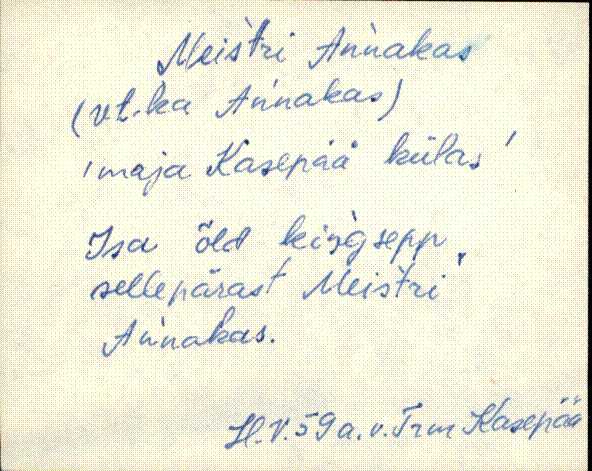 Meistri An'nakas
(vt. ka An'nakas)
'maja Kasepää külas'
Isa õld kin'gsepp,
sellepärast Meistri
An'nakas.
H.V. 59 a. v. Trm Kasepää